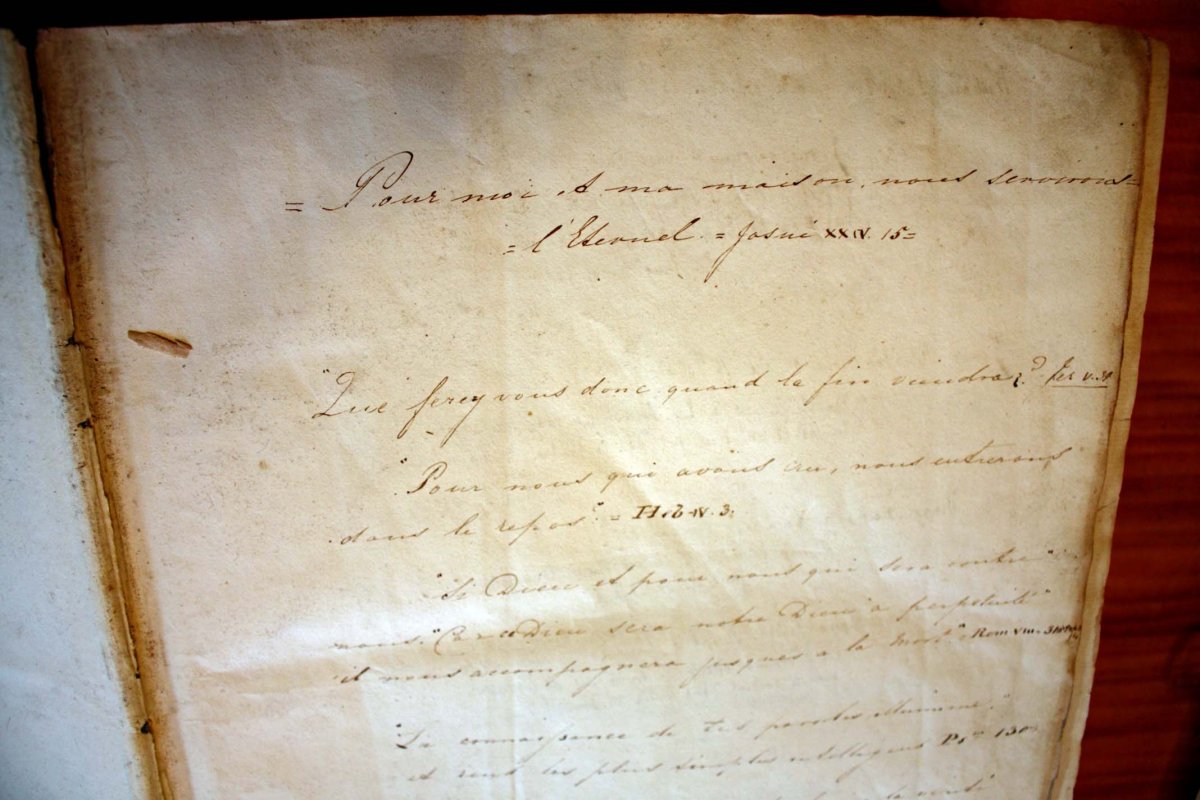 = Pour moi et ma maison, nous servirons =
= l'Eternel. = Josué XXIV. 15 =
"Que ferez vous donc quand la fin viendra?" Jer V. 31
"Pour nous qui avons cru, nous entrerons"
dans le repos." = Heb IV. 3.
"Si Dieu et pour nous qui sera contre"
nous." Car ce Dieu sera notre Dieu a perpetuité"
il nous accompagnera jusques a la mort" Rom VIII. 31
"La connaissance de tes paroles illumine,"
et rend les plus simples intelligens Ps.
la